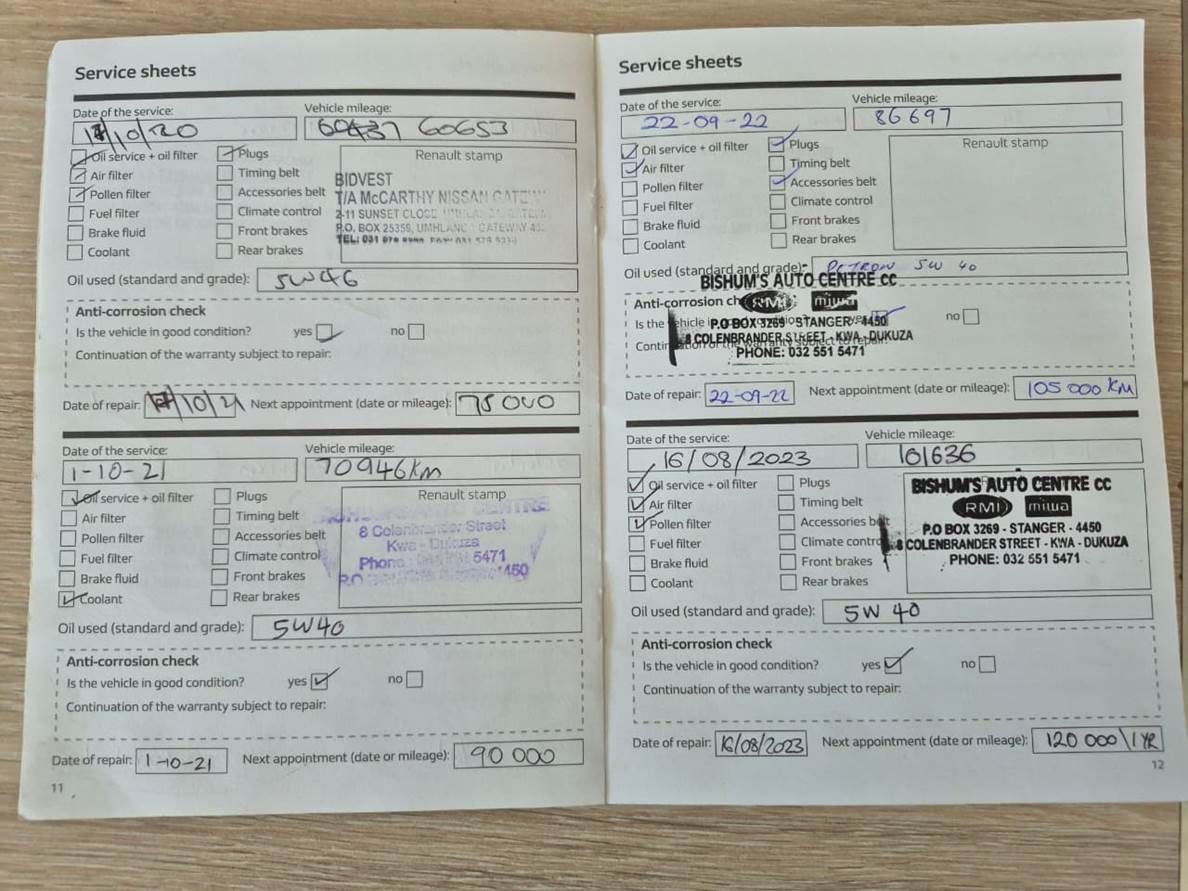 Service sheets
Date of the service: Vehicle mileage:
/10/20 60437 60653
Oil service + oil filter Plugs Renault stamp
Air filter Timing belt BIDVEST
Pollen filter Accessories belt T/A McCARTHY NISSAN GATEW
Fuel filter Climate control 2-11 SUNSET CLOSE
Brake fluid Front brakes P.O. BOX 25359, UMHLANG GATEWAY
Coolant Rear brakes TEL: 031
Oil used (standard and grade): 5W46
Anti-corrosion check
Is the vehicle in good condition? yes no
Continuation of the warranty subject to repair:
Date of repair: /10/21 Next appointment (date or mileage): 75000
Date of the service: Vehicle mileage:
1-10-21 70946km
Oil service + oil filter Plugs Renault stamp
Air filter Timing belt CENTRE
Pollen filter Accessories belt 8 Colenbrander Street
Fuel filter Climate control Kwa - Dukuza
Brake fluid Front brakes Phone 5471
Coolant Rear brakes P.O 450
Oil used (standard and grade): 5W40
Anti-corrosion check
Is the vehicle in good condition? yes no
Continuation of the warranty subject to repair:
Date of repair: 1-10-21 Next appointment (date or mileage): 90 000
11
Service sheets
Date of the service: Vehicle mileage:
22-09-22 86697
Oil service + oil filter Plugs Renault stamp
Air filter Timing belt
Pollen filter Accessories belt
Fuel filter Climate control
Brake fluid Front brakes
Coolant Rear brakes
Oil used (standard and grade): PETRON 5W 40
BISHUM'S AUTO CENTRE CC
Anti-corrosion ch RMI miwa
Is the vehicle i P.O BOX 3269 - STANGER - 4450 no
8 COLENBRANDER STREET - KWA - DUKUZA
Continuation of the warranty subject to repair:
PHONE: 032 551 5471
Date of repair: 22-09-22 Next appointment (date or mileage): 105 000 KM
Date of the service: Vehicle mileage:
16/08/2023 101636
Oil service + oil filter Plugs BISHUM'S AUTO CENTRE CC
Air filter Timing belt RMI miwa
Pollen filter Accessories belt P.O BOX 3269 - STANGER - 4450
Fuel filter Climate contro 8 COLENBRANDER STREET - KWA - DUKUZA
Brake fluid Front brakes PHONE: 032 551 5471
Coolant Rear brakes
Oil used (standard and grade): 5W 40
Anti-corrosion check
Is the vehicle in good condition? yes no
Continuation of the warranty subject to repair:
Date of repair: 16/08/2023 Next appointment (date or mileage): 120 000\1 YR
12